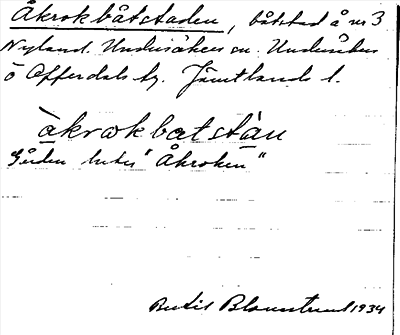 Åkrokbåtstaden, båtstad å nr 3
Nyland. Undersåkers sn. Undersåkers
o Offerdals tg. Jämtlands l.
åkrokbatstàn
Gården heter "Åkroken"
Bertil Blomstrand 1934